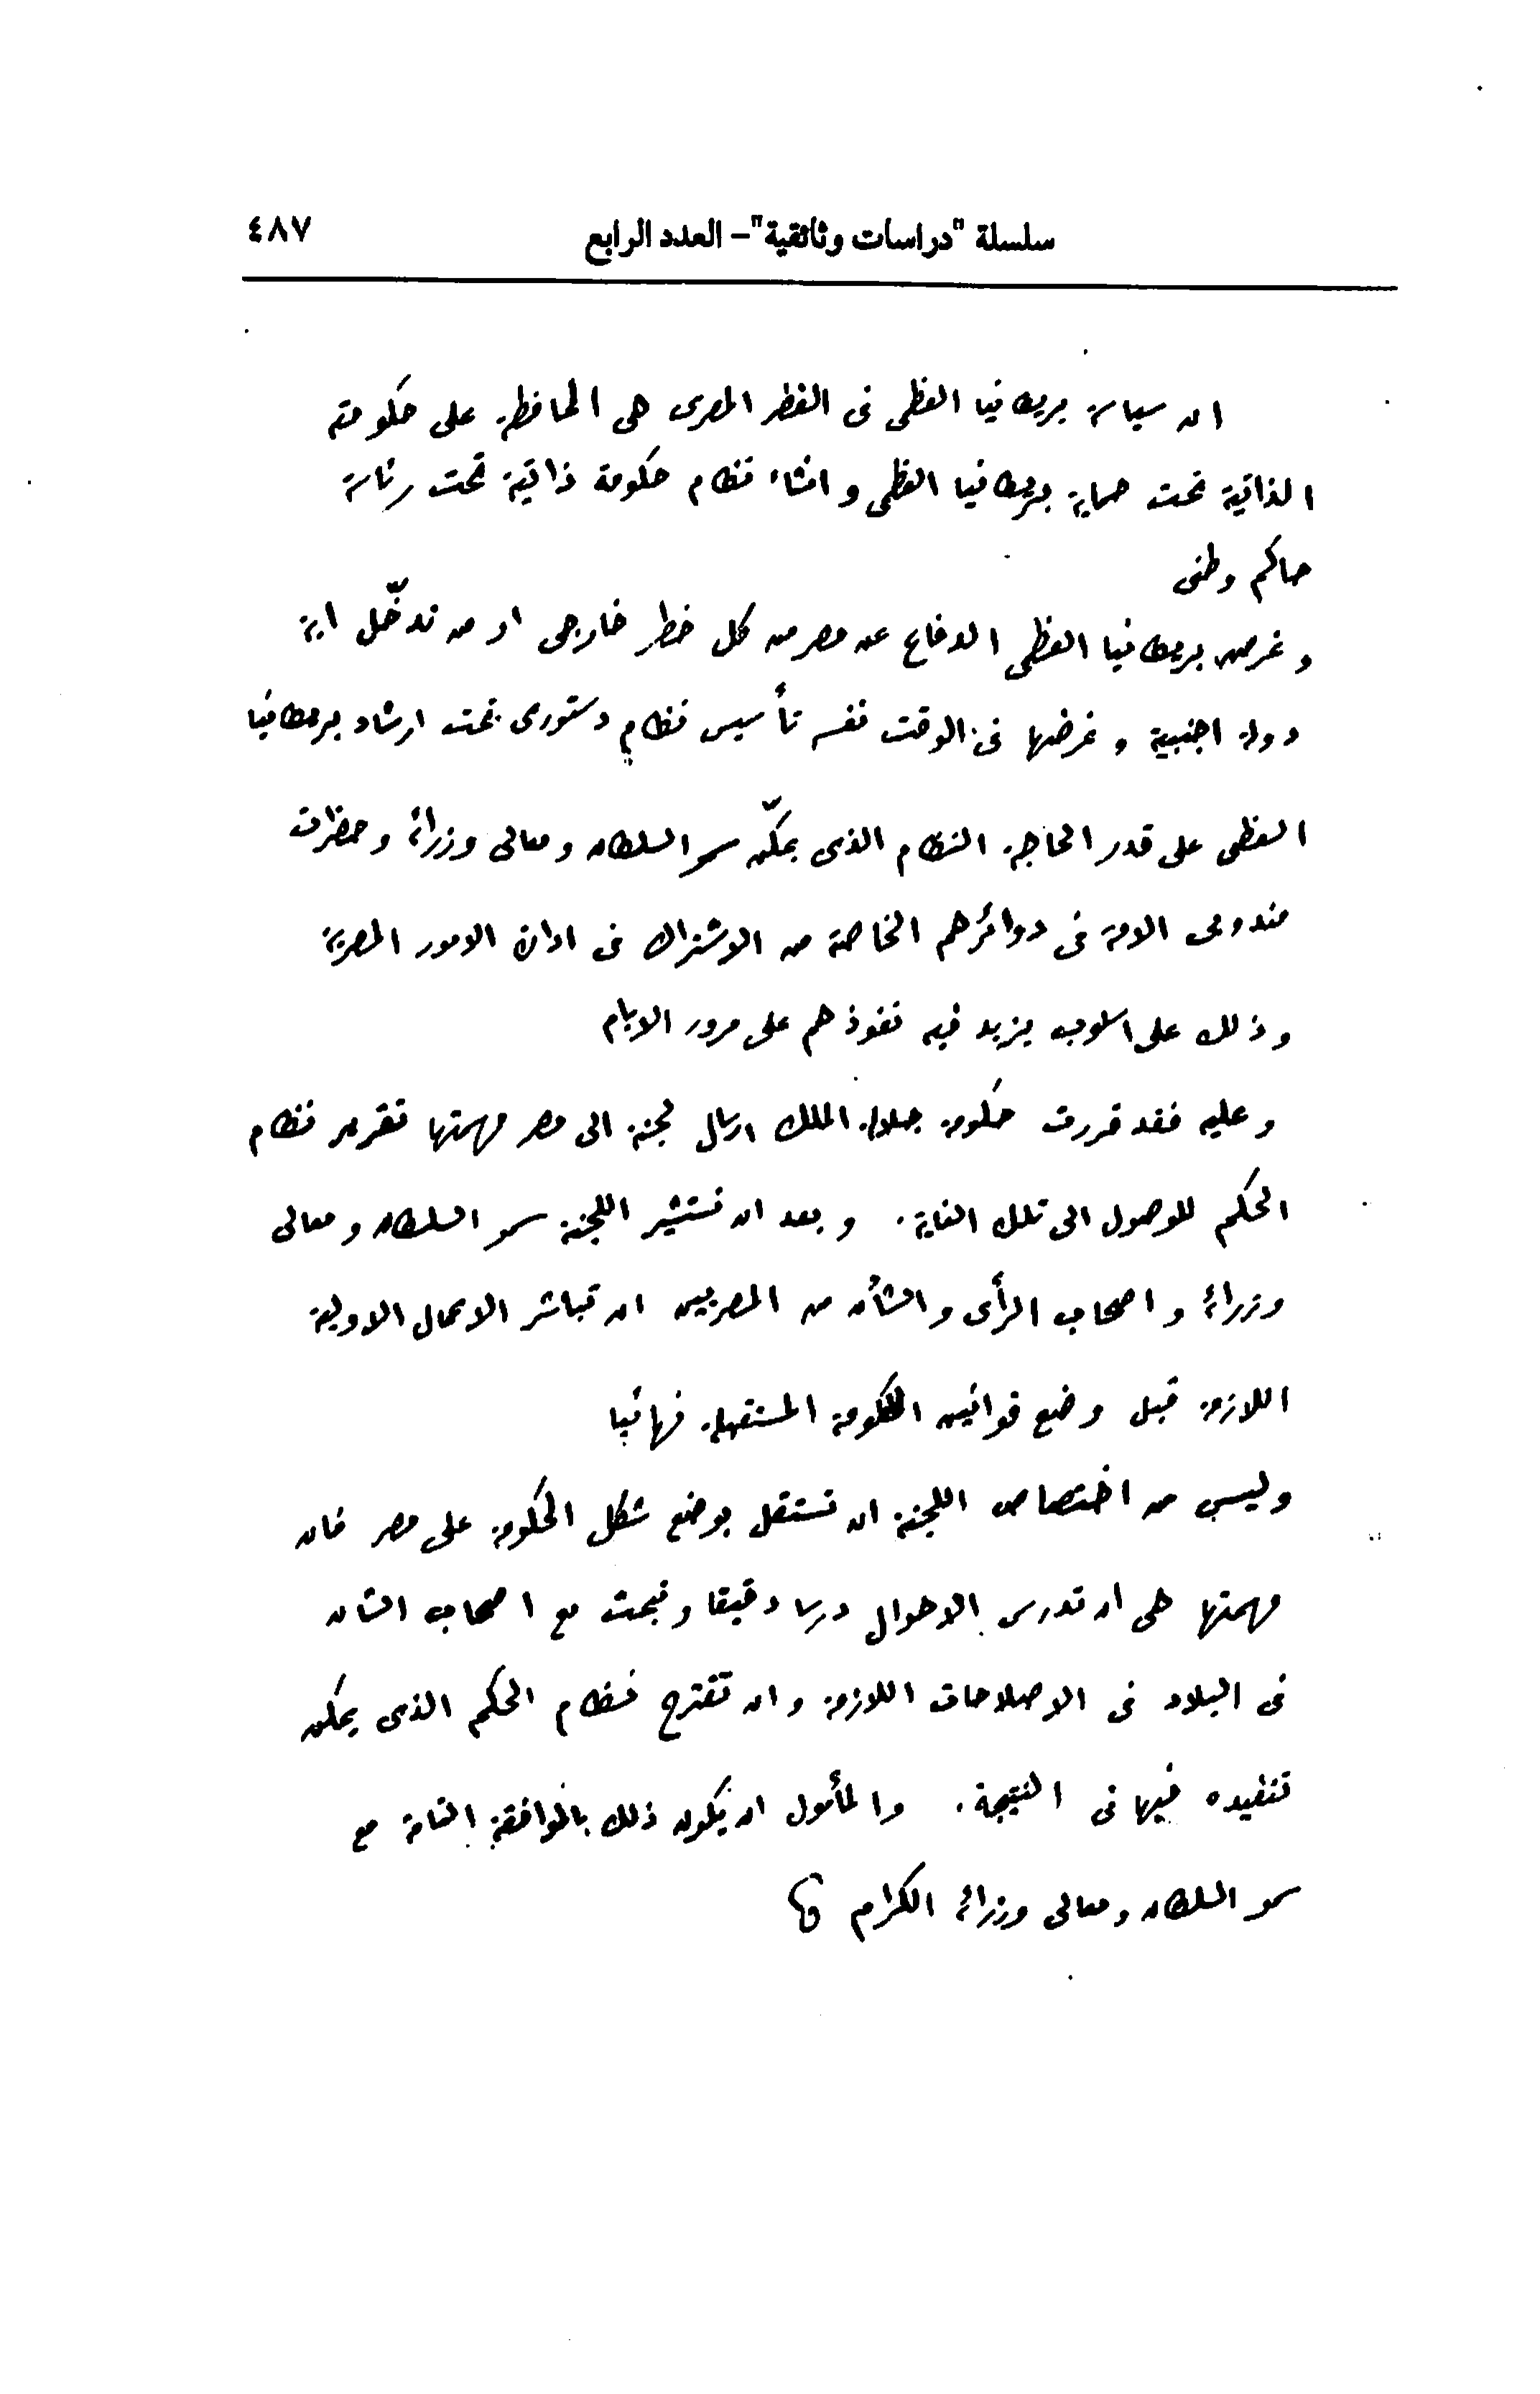 سلسلة "دراسات وثائقية" – العدد الرابع ٤٨٧
ان سياسة بريطانيا العظمى فى القطر المصرى هى المحافظة على حكومته
الذاتية تحت حماية بريطانيا العظمى وانشاء نظام حكومة ذاتية تحت رئاسة
حاكم وطنى
وغرض بريطانيا العظمى الدفاع عن مصر من كل خطر خارجى او من تدخّل اية
دولة اجنبية وغرضها فى الوقت نفسه تأسيس نظام دستورى تحت ارشاد بريطانيا
العظمى على قدر الحاجة. النظام الذى يمكّن سمو السلطان ومعالى وزرائه وحضرات
مندوبى الامة فى دوائرهم الخاصة من الاشتراك فى ادارة الامور المصرية
وذلك على اسلوب يزيد فيه نفوذهم على مرور الايام
وعليه فقد قررت حكومة جلالة الملك ارسال لجنة الى مصر مهمتها تقرير نظام
الحكم للوصول الى تلك الغاية. وبعد ان تستشير اللجنة سمو السلطان ومعالى
وزرائه واصحاب الرأى والشأن من المصريين ان تباشر الاعمال الاولية
اللازمة قبل وضع قوانين الحكومة المستقبلة نهائيا
وليس من اختصاص اللجنة ان تستقل بوضع شكل الحكومة على مصر فان
مهمتها هى ان تدرس الاحوال درسا دقيقا وتبحث مع اصحاب الشان
فى البلاد فى الاصلاحات اللازمة وان تقترح نظام الحكم الذى يمكن
تنفيذه فيها فى النتيجة. والمأمول ان يكون ذلك بالموافقة التامة مع
سمو السلطان ومعالى وزرائه الكرام